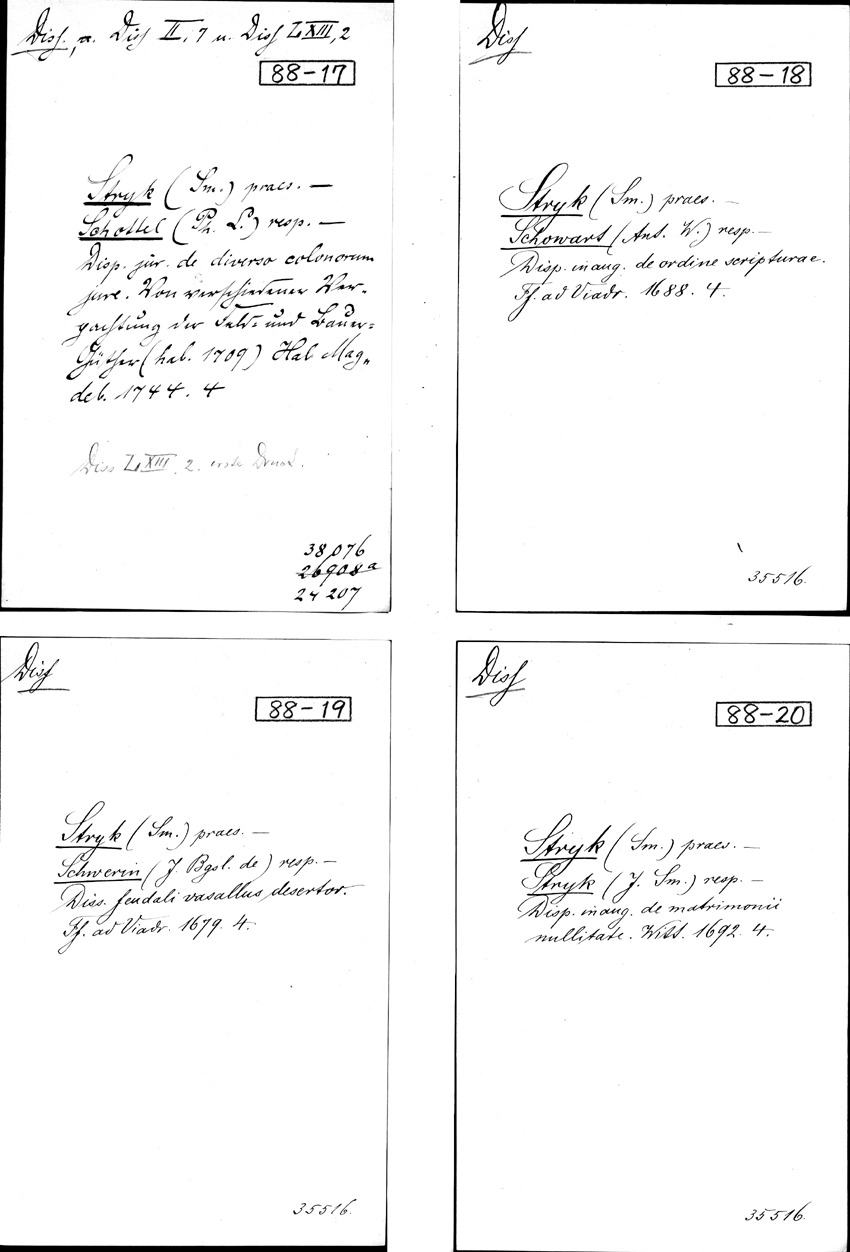 Diss. a. Diss II, 7 u. Diss LXIII, 2
88-17
Stryk (Sm.) praes. —
Schottel (Ph. L.) resp. —
Disp. jur. de diverso colonorum
jure. Von verschiedener Ver-
pachtung der Feld- und Bauer-
Güther (hab. 1709) Hal Mag-
deb. 1744. 4
Diss LXIII, 2. erster Druck.
38,076
26908a
24 207
Diss
88-18
Stryk (Sm.) praes. —
Schowart (Ant. W.) resp. —
Disp. inaug. de ordine scripturae.
Ff. ad Viadr. 1688. 4.
35516.
Diss
88-19
Stryk (Sm.) praes. —
Schwerin (J. Bgsl. de) resp. —
Diss. feudali vasallus desertor.
Ff. ad Viadr. 1679. 4.
35516.
Diss
88-20
Stryk (Sm.) praes. —
Stryk (J. Sm.) resp. —
Disp. inaug. de matrimonii
nullitate. Witt. 1692. 4.
35516.